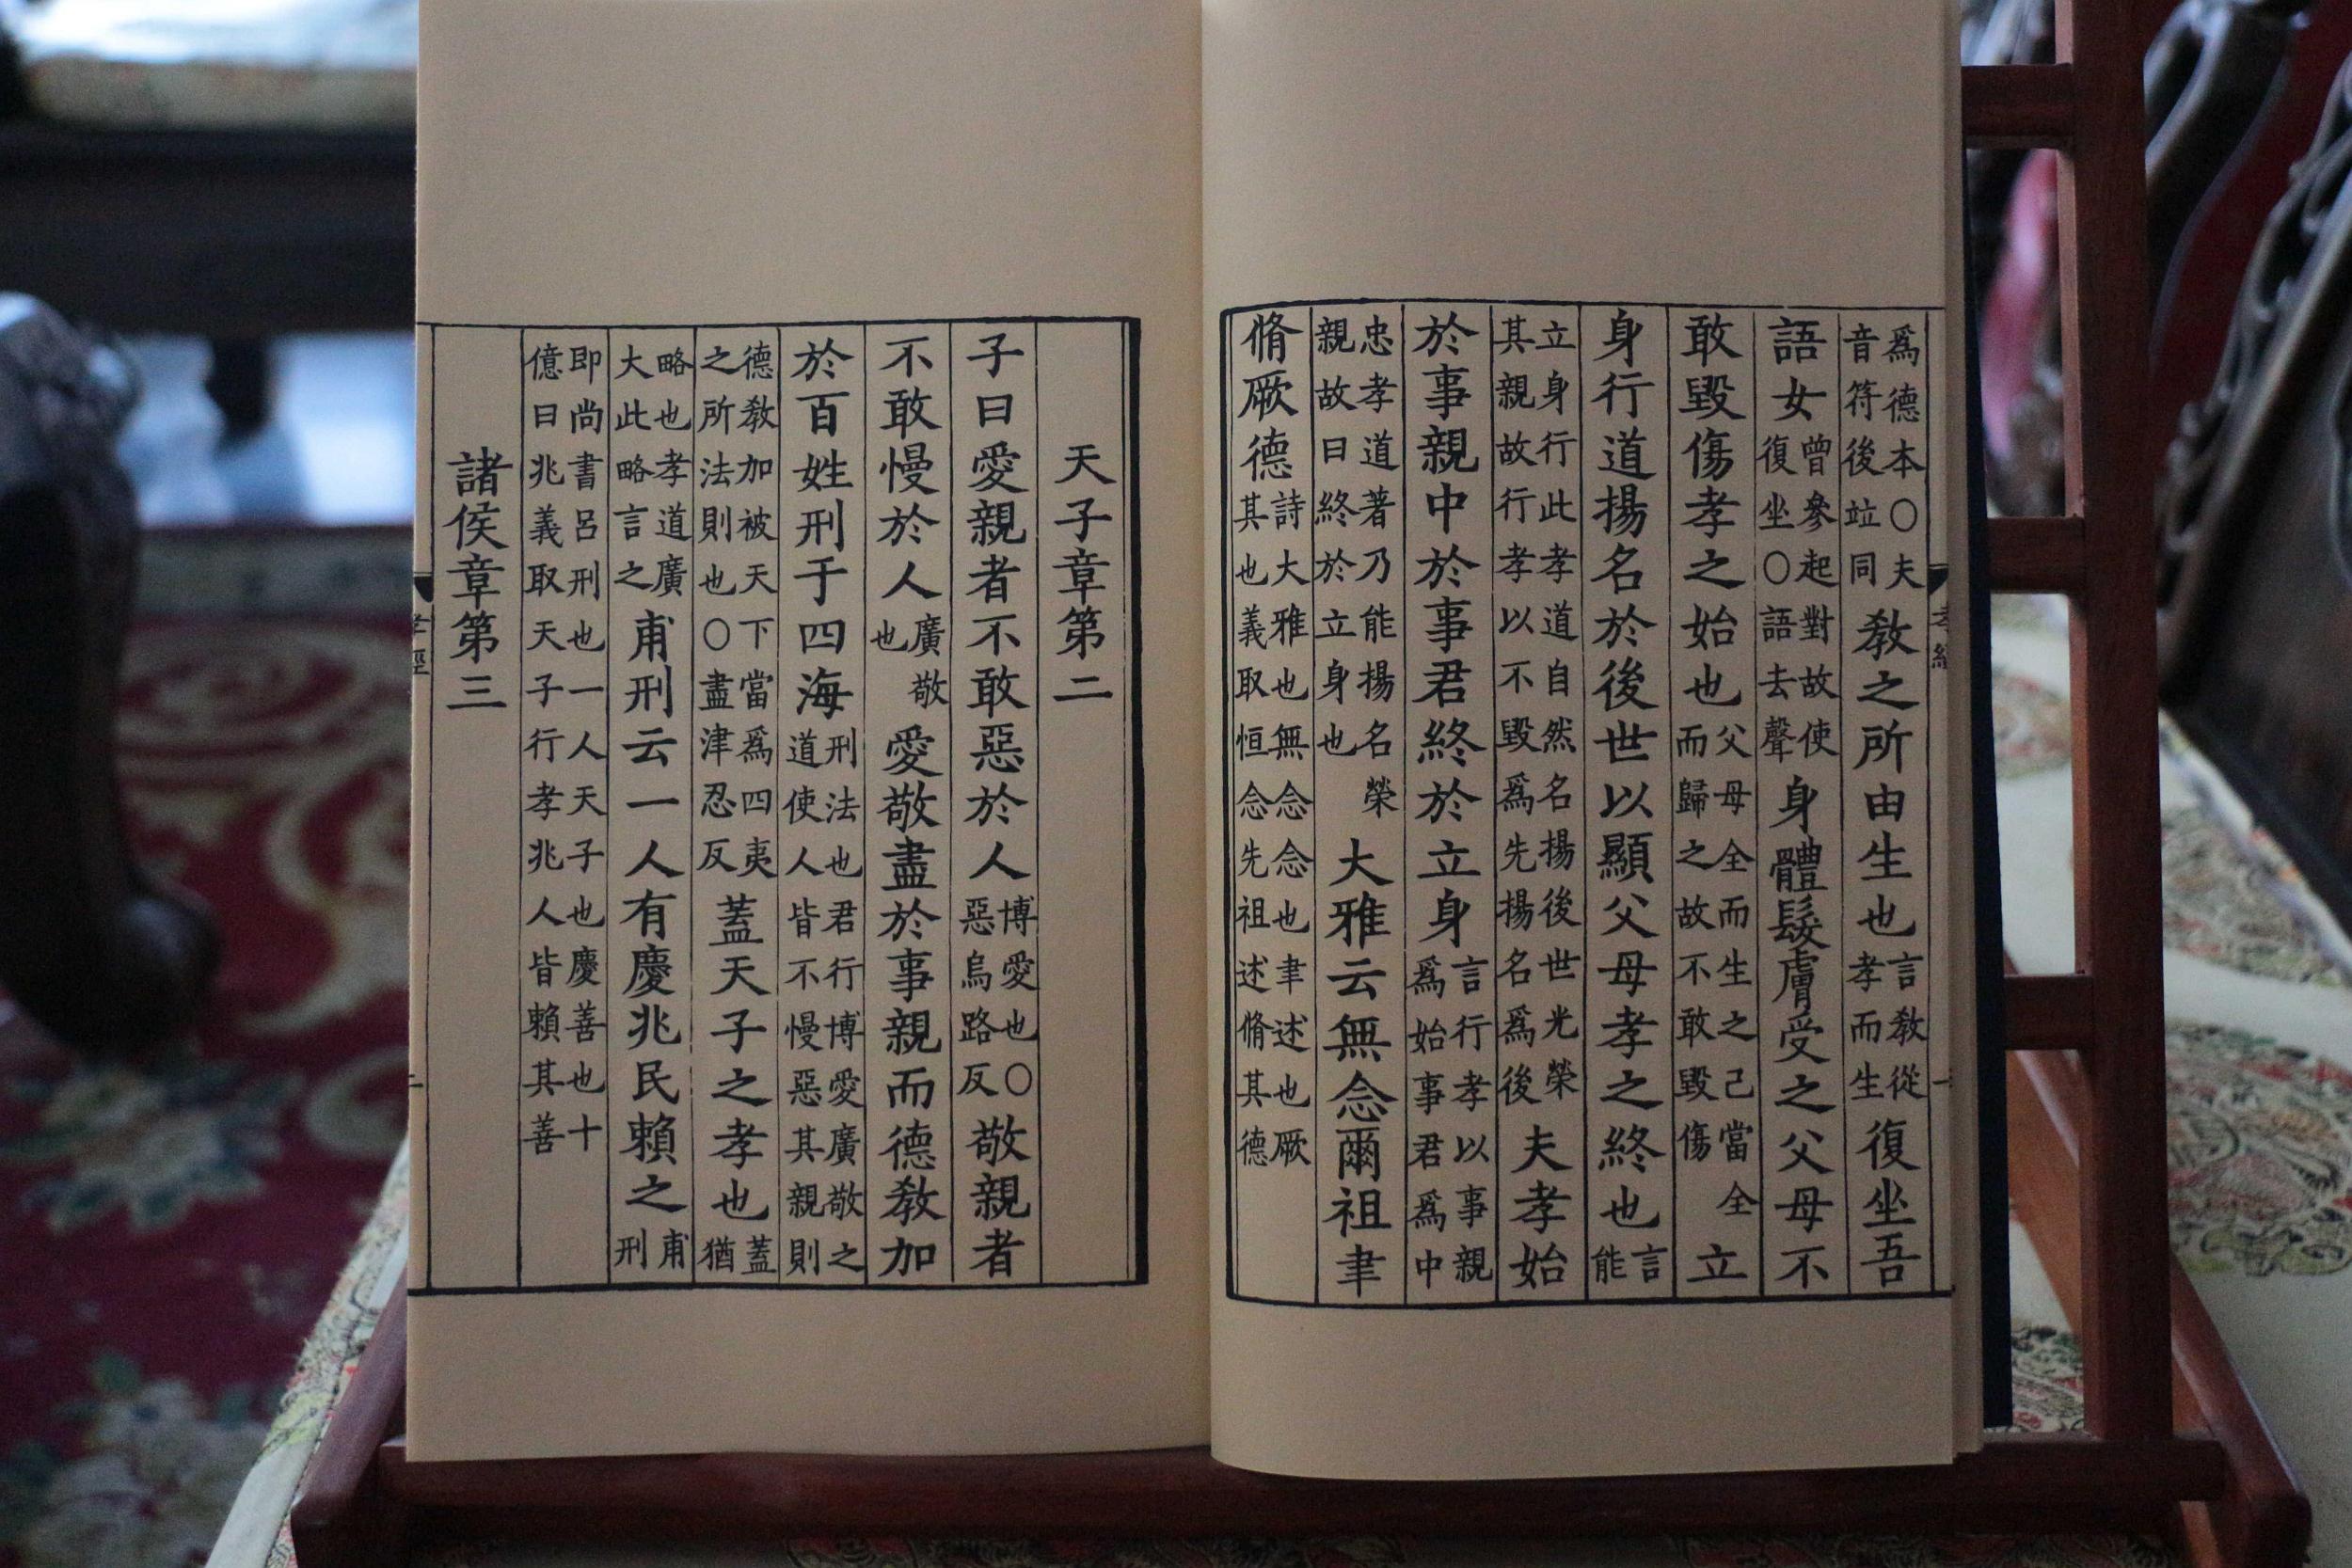 爲德本〇夫音符後竝同教之所由生也言教從孝而生復坐吾
語女曾參起對故使復坐〇語去聲身體髮膚受之父母不
敢毀傷孝之始也父母全而生之己當全而歸之故不敢毀傷立
身行道揚名於後世以顯父母孝之終也言能
立身行此孝道自然名揚後世光榮其親故行孝以不毀爲先揚名爲後夫孝始
於事親中於事君終於立身言行孝以事親爲始事君爲中
忠孝道著乃能揚名榮親故曰終於立身也大雅云無念爾祖聿
脩厥德詩大雅也無念念也聿述也厥其也義取恒念先祖述脩其德
天子章第二
子曰愛親者不敢惡於人博愛也〇惡烏路反敬親者
不敢慢於人廣敬也愛敬盡於事親而德教加
於百姓刑于四海刑法也君行博愛廣敬之道使人皆不慢惡其親則
德教加被天下當爲四夷之所法則也〇盡津忍反蓋天子之孝也蓋猶
略也孝道廣大此略言之甫刑云一人有慶兆民賴之甫刑
即尚書呂刑也一人天子也慶善也十億曰兆義取天子行孝兆人皆賴其善
諸侯章第三
孝經